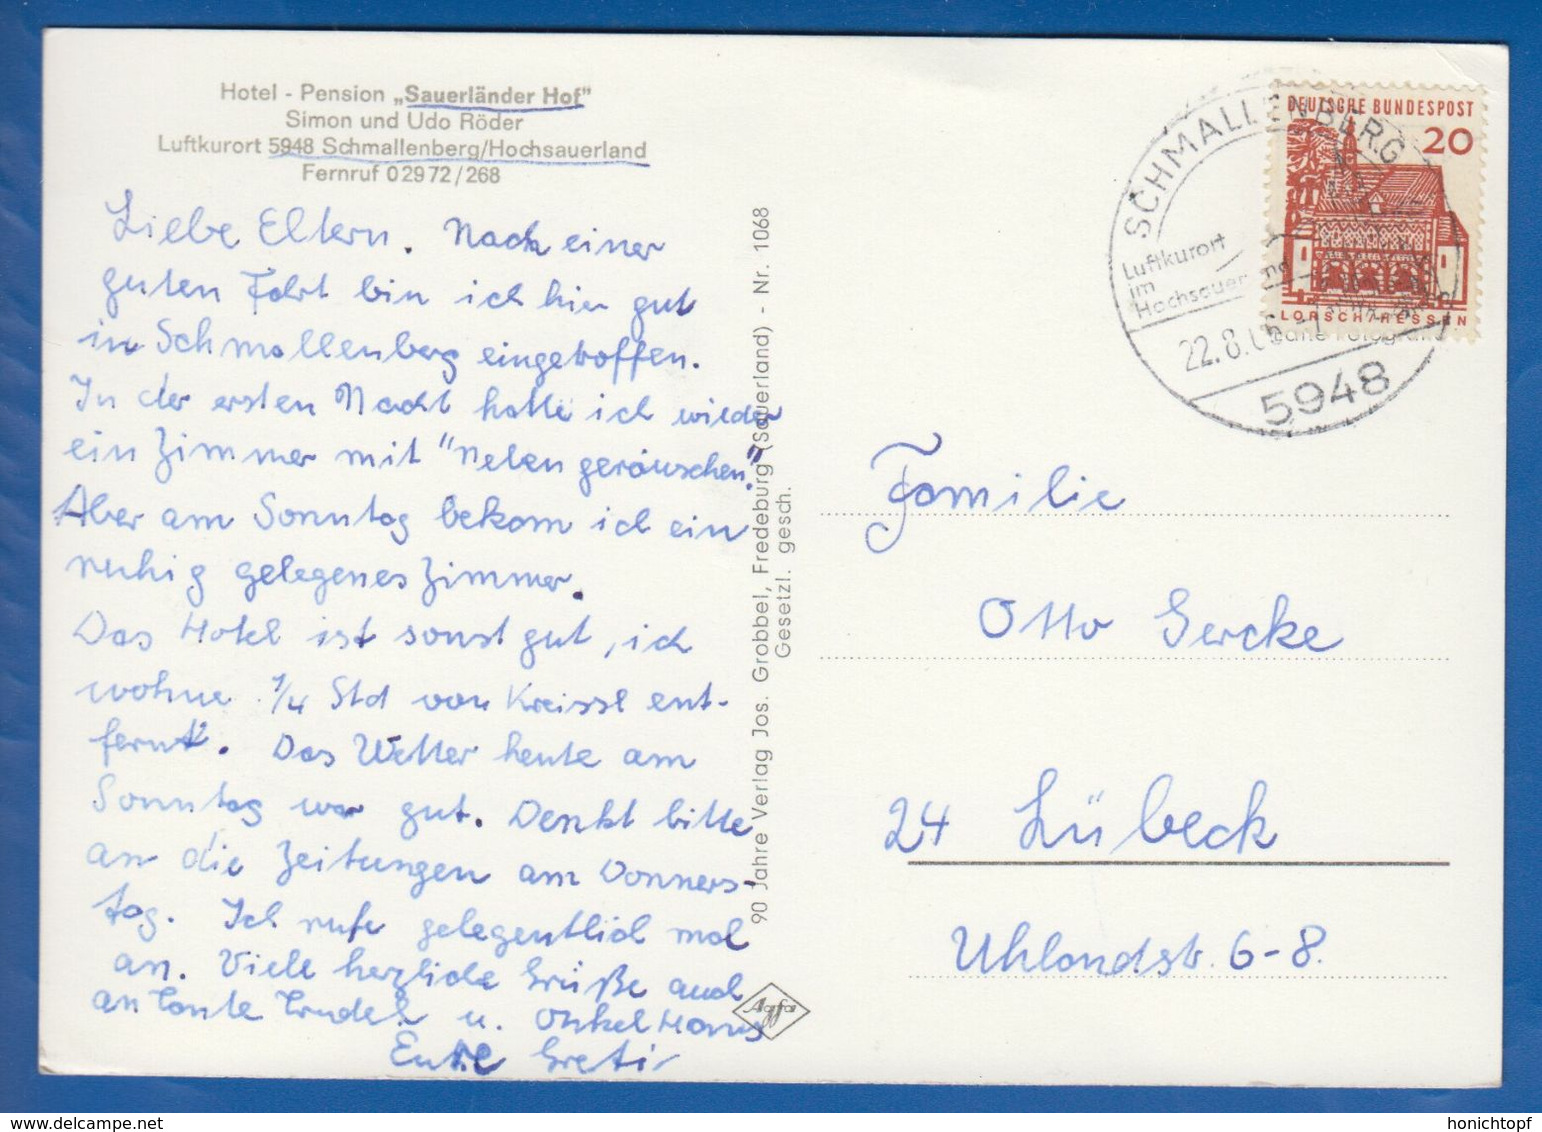 Hotel - Pension „Sauerländer Hof"
Simon und Udo Röder
Luftkurort 5948 Schmallenberg/Hochsauerland
Fernruf 02972/268
Liebe Eltern. Nach einer
guten Fahrt bin ich hier gut
in Schmallenberg eingetroffen.
In der ersten Nacht hatte ich wieder
ein Zimmer mit "Nebengeräuschen."
Aber am Sonntag bekam ich ein
ruhig gelegenes Zimmer.
Das Hotel ist sonst gut, ich
wohne 1/4 Std von Kreissl ent-
fernt. Das Wetter heute am
Sonntag war gut. Denkt bitte
an die Zeitungen am Donners-
tag. Ich rufe gelegentlich mal
an. Viele herzliche Grüße auch
an Tante Trudel u. Onkel Hans
Eure Greti
90 Jahre Verlag Jos. Grobbel, Fredeburg (Sauerland) - Nr. 1068
Gesetzl. gesch.
Agfa
DEUTSCHE BUNDESPOST
20
LORSCH/HESSEN
SCHMALLENBERG
Luftkurort
im
Hochsauer
22.8.6
5948
Familie
Otto Gercke
24 Lübeck
Uhlandstr. 6-8.
honichtopf